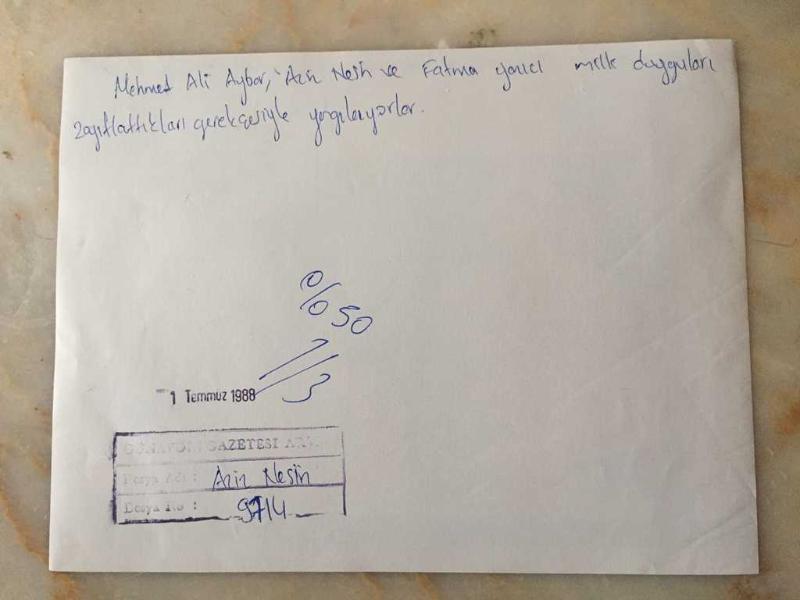 Mehmet Ali Aybar, Aziz Nesin ve Fatma Yazıcı milli duyguları
zayıflattıkları gerekçesiyle yargılanıyorlar.
% 50
3
1 Temmuz 1988
GÜNAYDIN GAZETESİ
Dosya Adı : Aziz Nesin
Dosya No : 9714